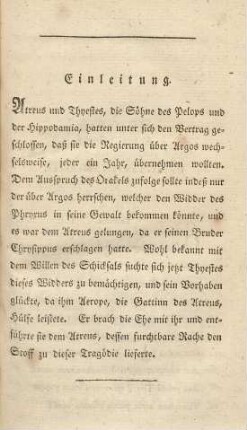 Einleitung.
Atreus und Thyestes, die Söhne des Pelops und
der Hippodamia, hatten unter sich den Vertrag ge-
schlossen, daß sie die Regierung über Argos wech-
selsweise, jeder ein Jahr, übernehmen wollten.
Dem Ausspruch des Orakels zufolge sollte indeß nur
der über Argos herrschen, welcher den Widder des
Phryxus in seine Gewalt bekommen könnte, und
es war dem Atreus gelungen, da er seinen Bruder
Chrysippus erschlagen hatte. Wohl bekannt mit
dem Willen des Schicksals suchte sich jetzt Thyestes
dieses Widders zu bemächtigen, und sein Vorhaben
glückte, da ihm Aerope, die Gattinn des Atreus,
Hülfe leistete. Er brach die Ehe mit ihr und ent-
führte sie dem Atreus, dessen furchtbare Rache den
Stoff zu dieser Tragödie lieferte.